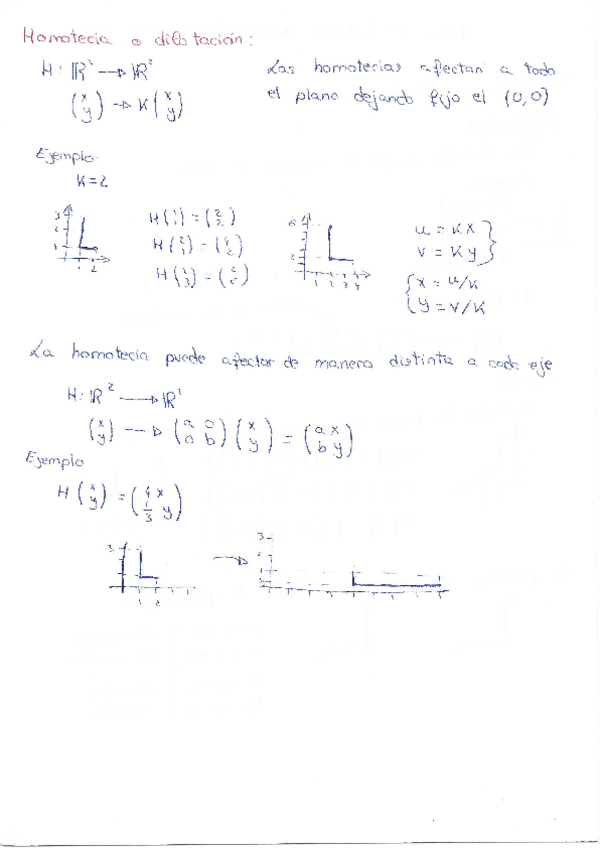 Homotecia o dilatación:
H: ℝ² → ℝ²
(x y) → K (x y)
Las homotecias afectan a todo
el plano dejando fijo el (0,0)
Ejemplo:
K=2
3 2 1 1 2
H(1 1) = (2 2)
H(2 1) = (4 2)
H(1 3) = (2 6)
6 2 1 2 3 4
u = Kx
v = Ky
x = u/K
y = v/K
La homotecia puede afectar de manera distinta a cada eje
H: ℝ² → ℝ²
(x y) → (a 0 0 b) (x y) = (ax by)
Ejemplo
H(x y) = (4x 1/3 y)
3 1 2
3 2 1